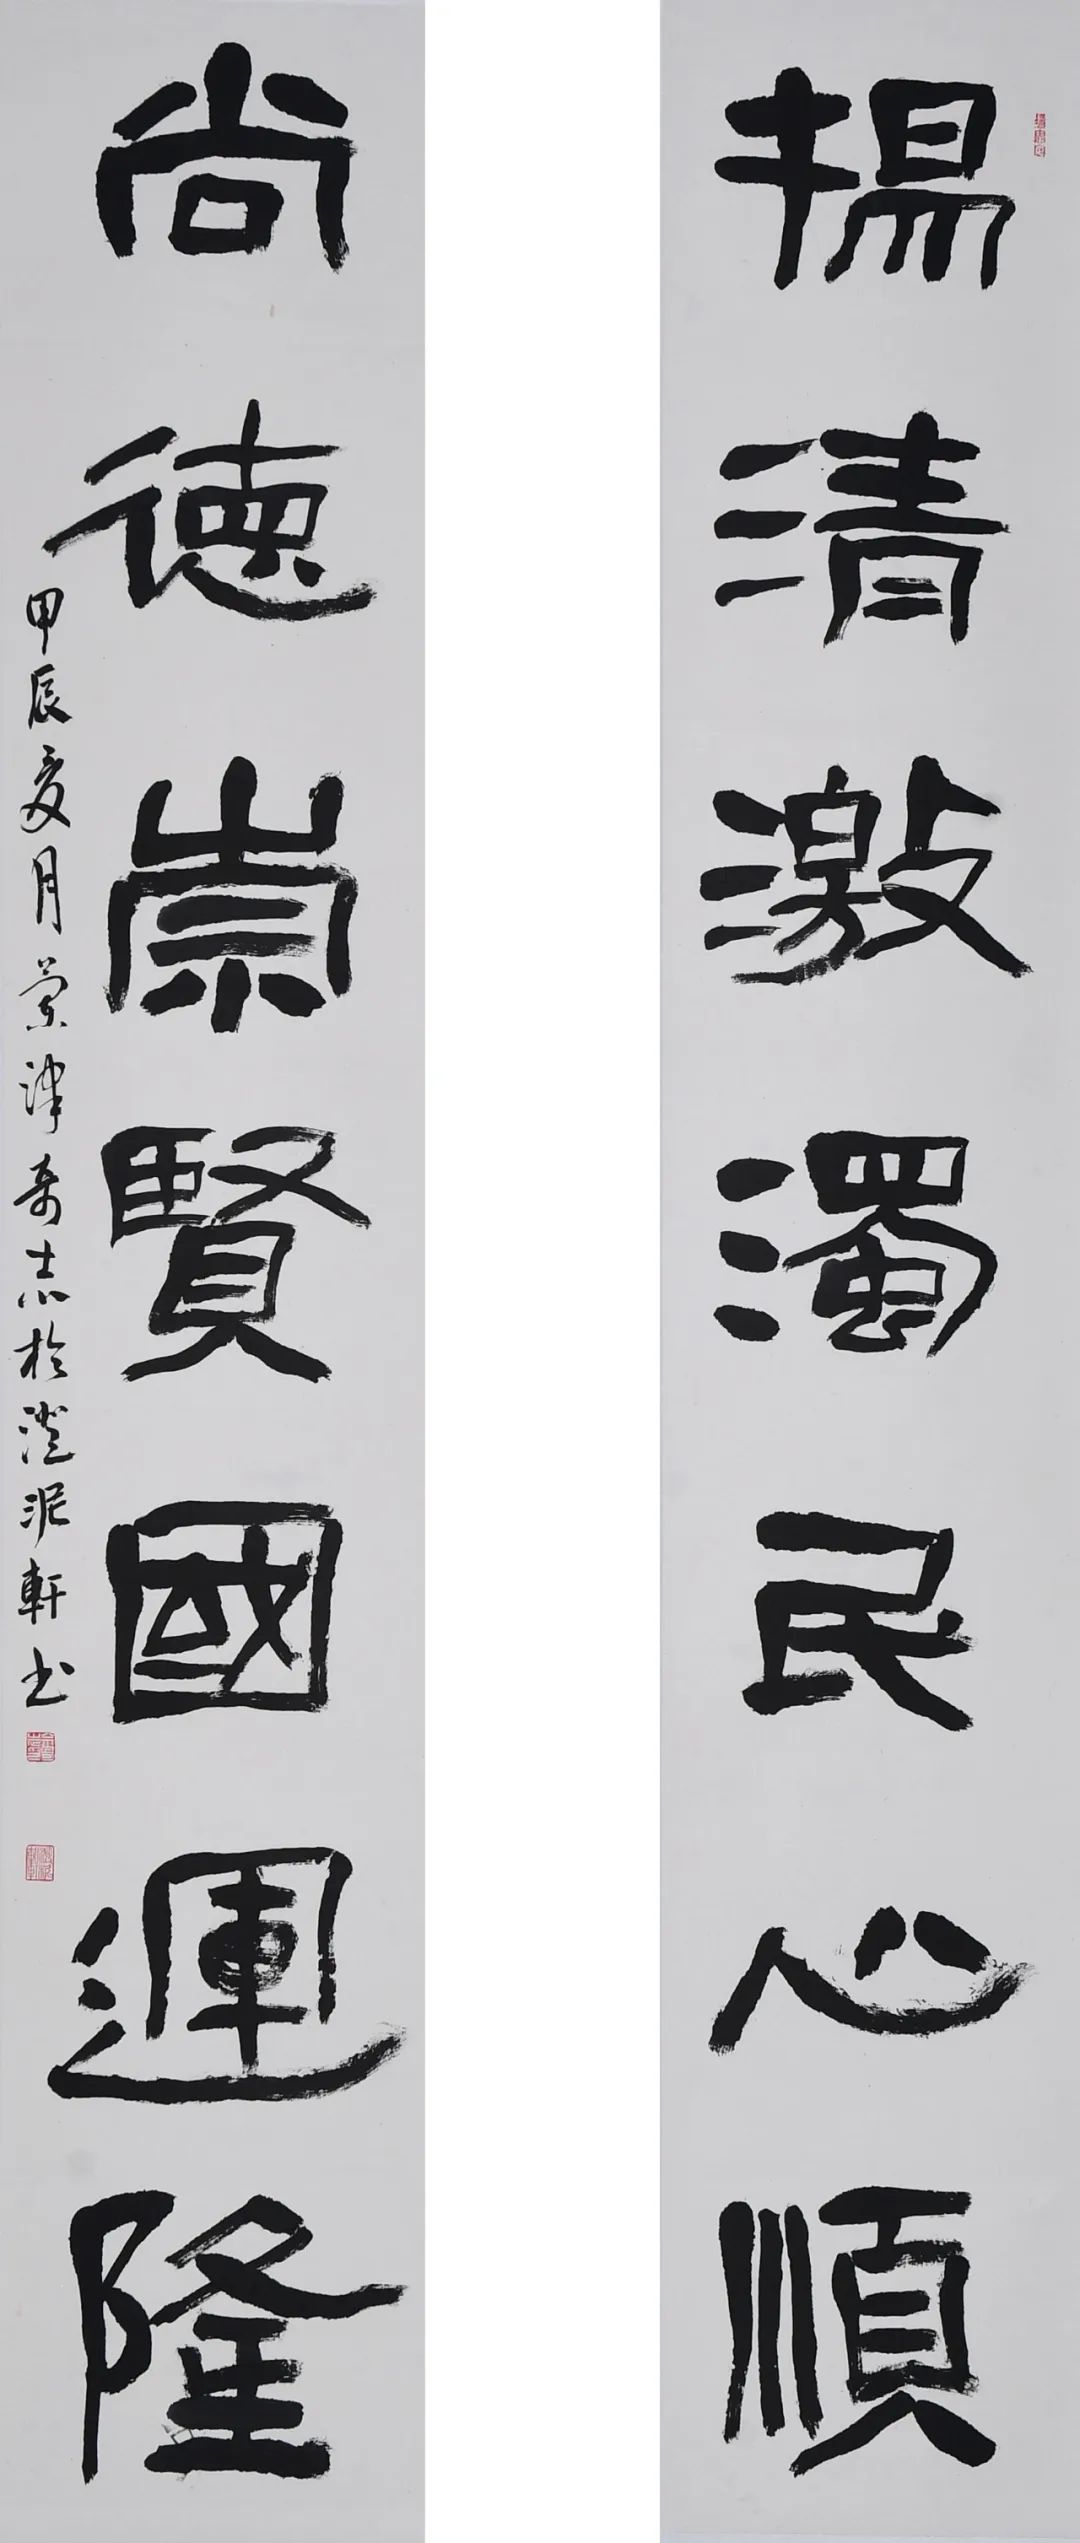 揚清激濁民心順
尚德崇賢國運隆
甲辰夏月 津奇志於澄泥軒書